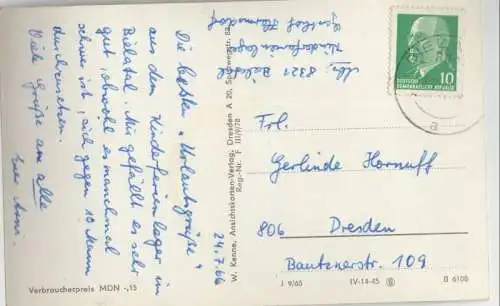 Abs. 8321 Bielatal
Kinderferienlager
Gasthof Hermsdorf
24.7.66
Die besten „Urlaubsgrüße"
aus dem Kinderferienlager im
Bielatal. Mir gefällt es sehr
gut, obwohl es manchmal
schwer ist, sich gegen 10 Mann
durchzusetzen.
Viele Grüße an alle
Eure
Verbraucherpreis MDN -,15
W. Kenne, Ansichtskarten-Verlag, Dresden A 20,
Reg.-Nr. F III/9/78
10
DEUTSCHE
DEMOKRATISCHE REPUBLIK
Frl.
Gerlinde Hornuff
806 Dresden
Bautznerstr. 109
J 9/65 IV-14-45 B 6108